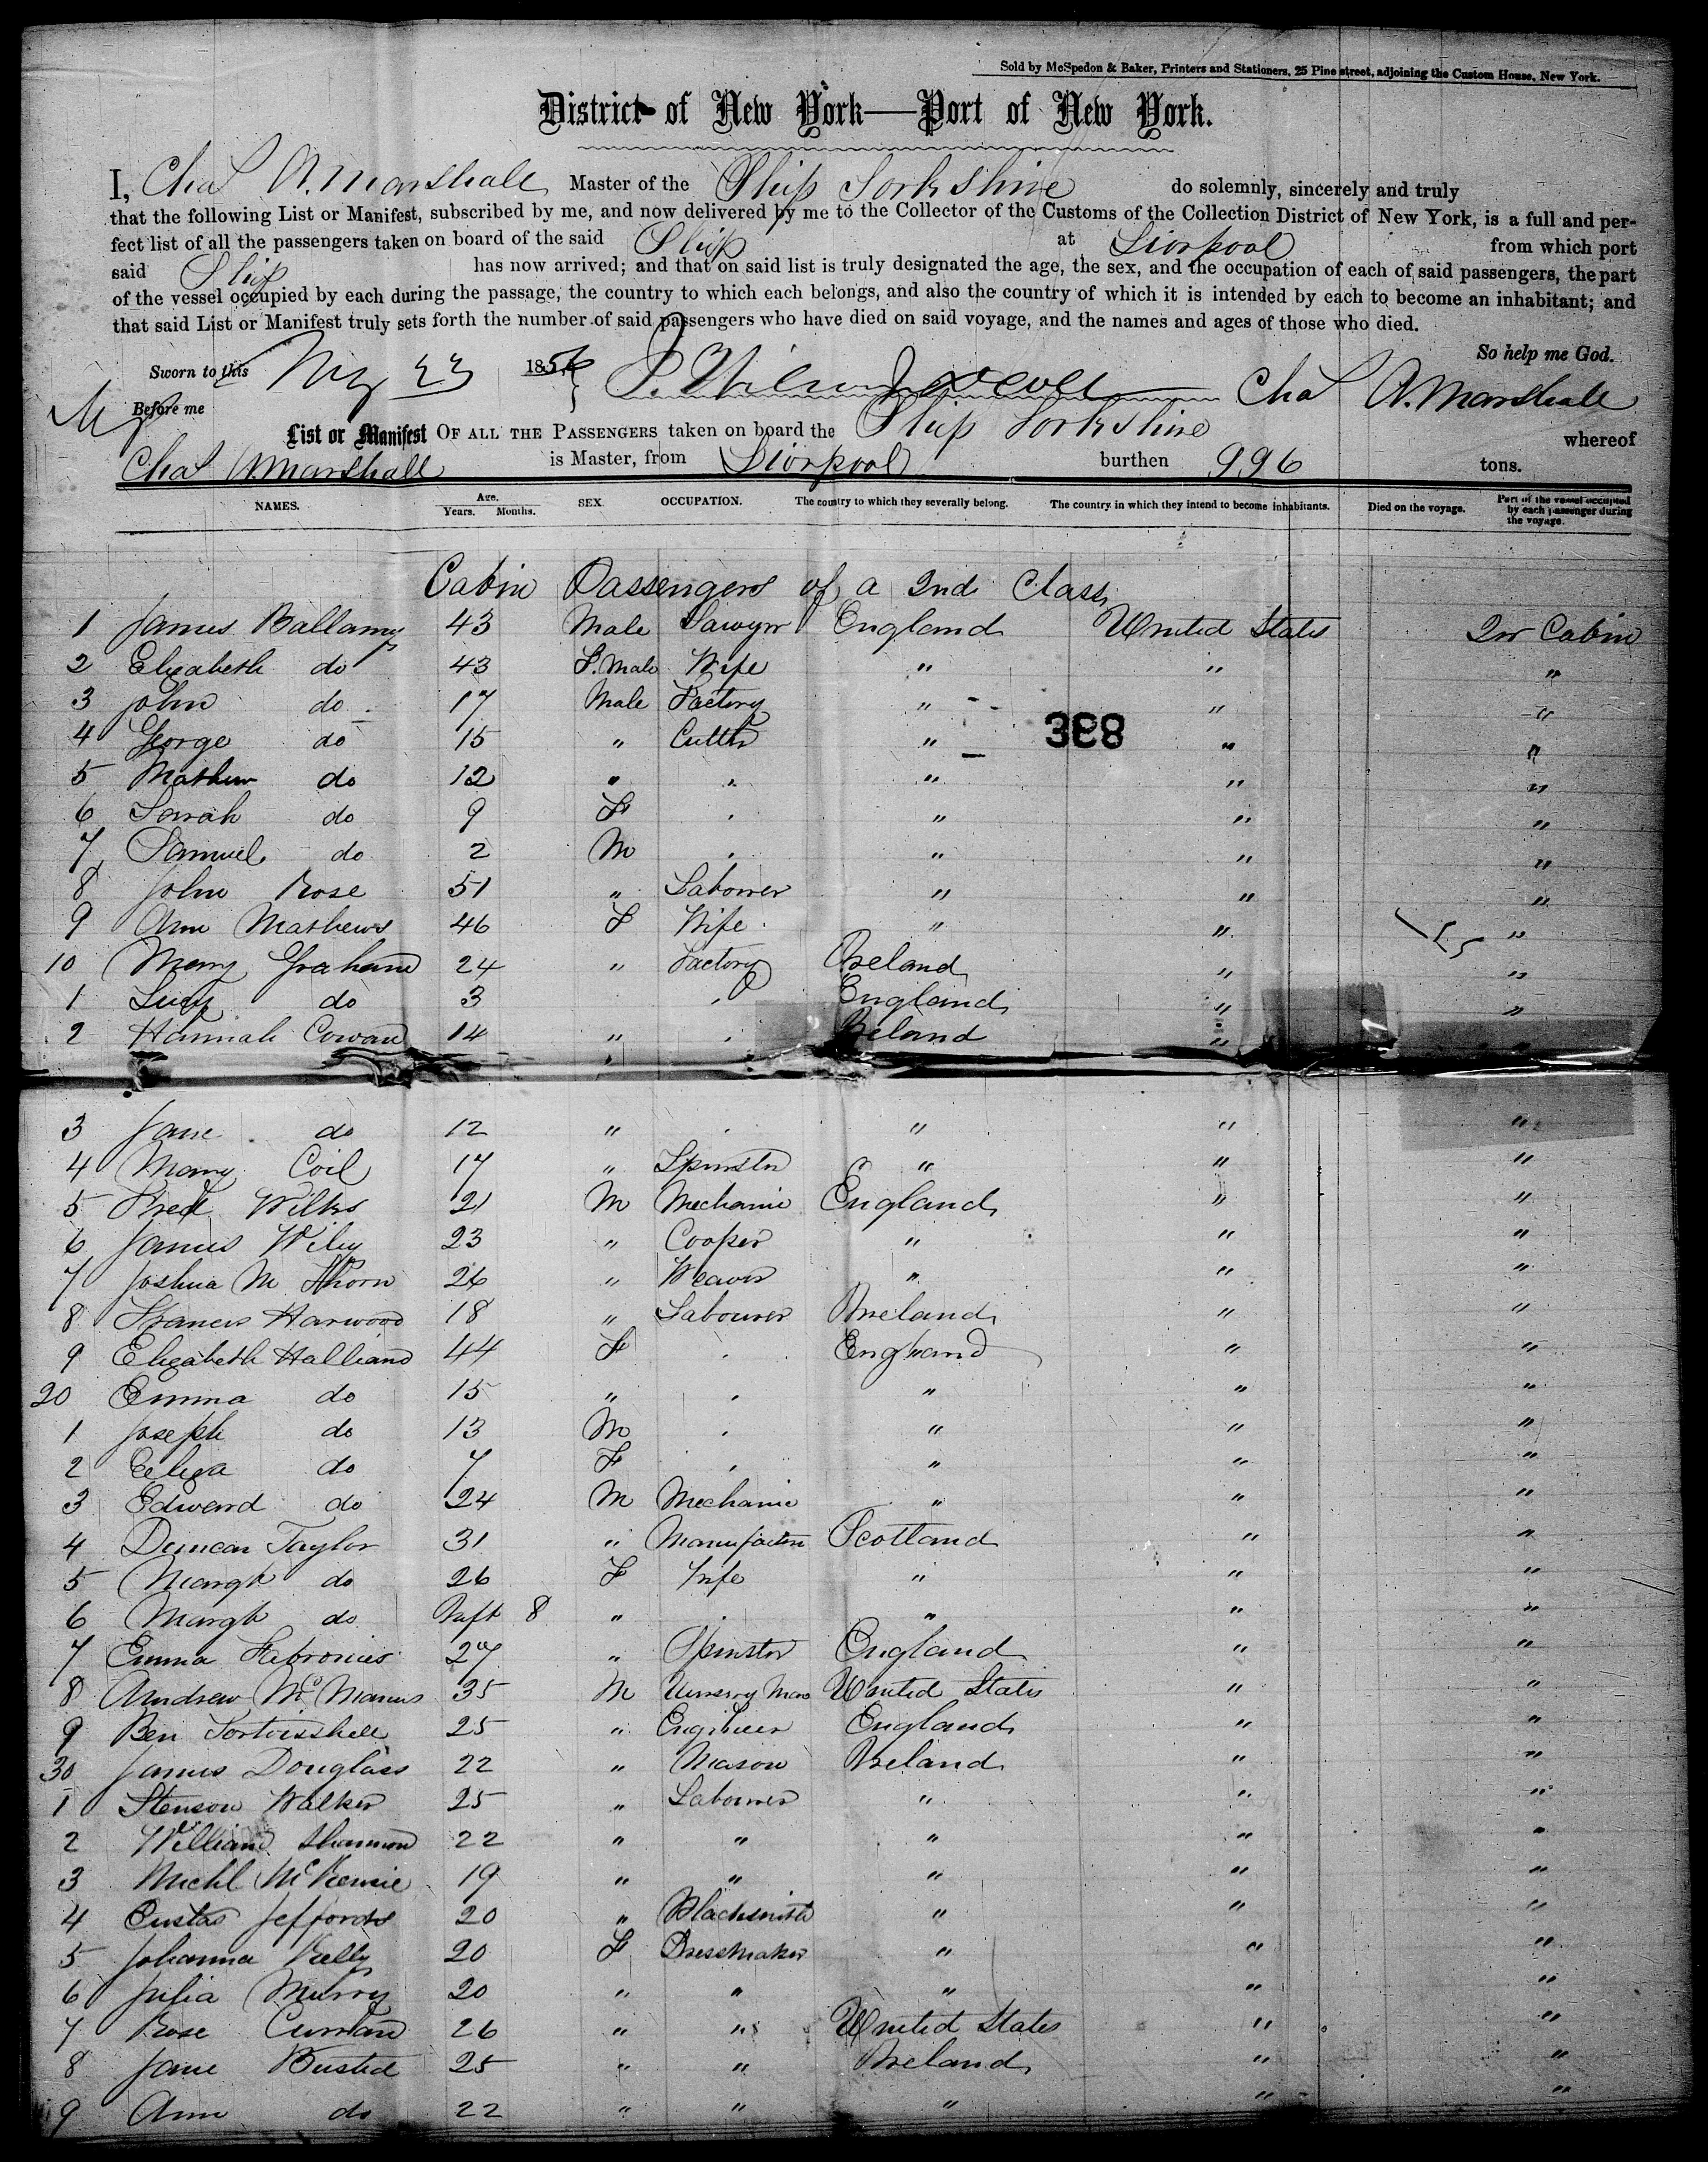 Sold by McSpedon & Baker, Printers and Stationers, 25 Pine street, adjoining the Custom House, New York.
District of New York—Port of New York.
I, Chas A. Marshall Master of the Ship Yorkshire do solemnly, sincerely and truly
that the following List or Manifest, subscribed by me, and now delivered by me to the Collector of the Customs of the Collection District of New York, is a full and per-
fect list of all the passengers taken on board of the said Ship at Liverpool from which port
said Ship has now arrived; and that on said list is truly designated the age, the sex, and the occupation of each of said passengers, the part
of the vessel occupied by each during the passage, the country to which each belongs, and also the country of which it is intended by each to become an inhabitant; and
that said List or Manifest truly sets forth the number of said passengers who have died on said voyage, and the names and ages of those who died.
So help me God.
Sworn to this 23 1856 Chas A. Marshall
Before me
List or Manifest OF ALL THE PASSENGERS taken on board the Ship Yorkshire whereof
Chas A. Marshall is Master, from Liverpool burthen 996 tons.
NAMES. Age. Years. Months. SEX. OCCUPATION. The country to which they severally belong. The country in which they intend to become inhabitants. Died on the voyage. Part of the vessel occupied by each passenger during the voyage.
Cabin Passengers of a 2nd Class
1 James Ballamy 43 Male Sawyer England United States 2nr Cabin
2 Elizabeth do 43 F.Male Wife " " "
3 John do 17 Male Factory " " "
4 George do 15 " Cutter " " "
5 Mathew do 12 " " " " "
6 Sarah do 9 F " " "
7 Samuel do 2 M " " "
8 John Rose 51 " Labourer " " "
9 Ann Mathews 46 F Wife " " "
10 Mary Graham 24 " Factory Ireland " "
1 Lucy do 3 England " "
2 Hannah Cowan 14 " Ireland " "
3 Jane do 12 " " " "
4 Mary Coil 17 " Spinster " " "
5 Fred Wilks 21 M Mechanic England " "
6 James Wiley 23 " Cooper " " "
7 Joshua M Thorn 26 " Weaver " " "
8 Francis Harwood 18 " Labourer Ireland " "
9 Elizabeth Halliand 44 F England " "
20 Emma do 15 " " " "
1 Joseph do 13 M " " "
2 Eliza do 7 F " " "
3 Edward do 24 M Mechanic " " "
4 Duncan Taylor 31 " Scotland " "
5 Margt do 26 F Wife " " "
6 Margt do Inft 8 " " " "
7 Emma 27 " Spinster England " "
8 Andrew McManus 35 M United States " "
9 Ben Tortoisshell 25 " Engineer England " "
30 James Douglass 22 " Mason Ireland " "
1 Stenson Walker 25 " Labourer " " "
2 William Shannon 22 " " " " "
3 Michl McKensie 19 " " " " "
4 Custas Jeffords 20 " Blacksmith " " "
5 Johanna Kelly 20 F Dressmaker " " "
6 Julia Murry 20 " " " " "
7 Rose 26 " " United States " "
8 Jane Busted 25 " " Ireland " "
9 Ann do 22 " " " " "